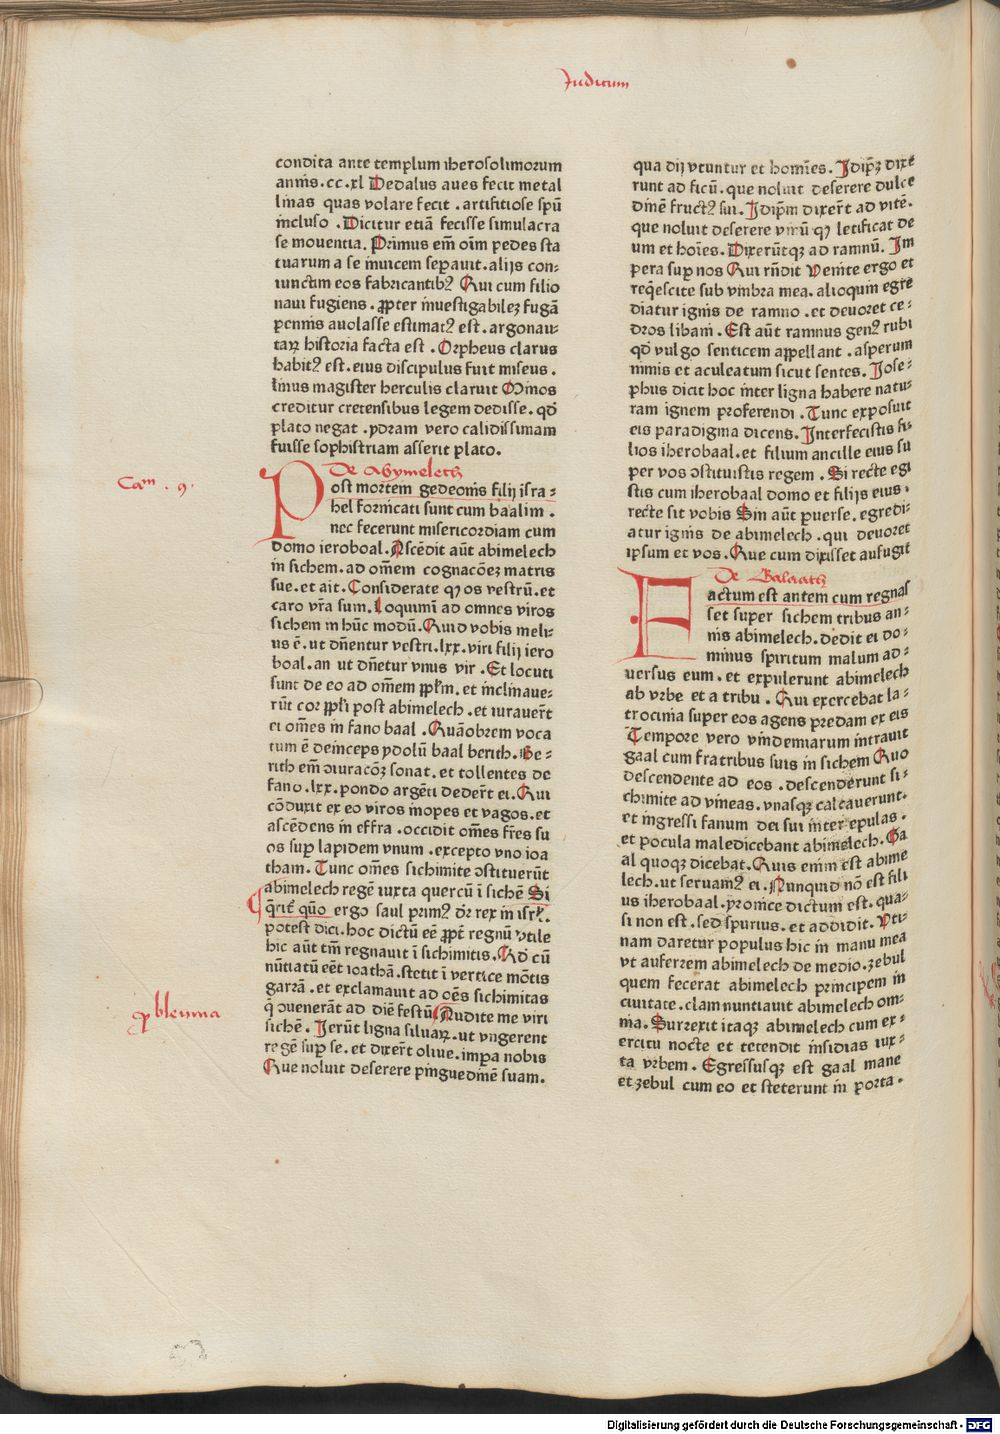 Judicum
condita ante templum iherosolimorum
annis.cc.xl Dedalus aues fecit metal
linas quas volare fecit .artifitiose spū
incluso .Dicitur etiā fecisse simulacra
se mouentia. Primus em̄ oīm pedes sta
tuarum a se inuicem separauit.alijs con:
iunctim eos fabricantibꝰ Qui cum filio
naui fugiens .ꝓpter inuestigabilez fugā
pennis auolasse estimatꝰ est .argonau:
taꝝ historia facta est .Orpheus clarus
habitꝰ est.eius discipulus fuit museus.
linus magister herculis claruit Minos
creditur cretensibus legem dedisse. qd̄
plato negat .ydram vero calidissimam
fuisse sophistriam asserit plato.
De Abymelech
Cam . 9.
Post mortem gedeonis filij isra:
hel fornicati sunt cum baalim .
nec fecerunt misericordiam cum
domo ieroboal.Ascēdit aūt abimelech
in sichem.ad om̄em cognacōez matris
sue.et ait.Considerate qꝫ os vestrū.et
caro vr̄a sum.Loquimī ad omnes viros
sichem in hūc modū.Quid vobis meli:
us ē.ut dn̄entur vestri.lxx.viri filij iero
boal.an ut dn̄etur vnus vir .Et locuti
sunt de eo ad om̄em ppl̄m.et inclinaue:
rūt cor ppl̄i post abimelech .et iurauer̄t
ei om̄es in fano baal .Quāobrem voca
tum ē deinceps ydolū baal berith.Be:
rith em̄ ꝯiuracōꝫ sonat.et tollentes de
fano.lxx.pondo argēti deder̄t ei.Qui
cōduxit ex eo viros inopes et vagos.et
ascēdens in effra .occidit om̄es fr̄es su
os suꝑ lapidem vnum .excepto vno ioa
tham. Tunc om̄es sichimite ꝯstituerūt
abimelech regē iuxta quercū ī sichē Si
q̄rit̄ quō ergo saul primꝰ dr̄ rex in isrl̄.
potest dici.hoc dictū eē ꝓpt̄ regnū vtile
hic aūt tm̄ regnauit ī sichimitis.Ad cū
nūtiatū eēt ioathā.stetit ī vertice mōtis
garzā .et exclamauit ad oēs sichimitas
ꝓbleuma
q̄ ꝯuenerāt ad diē festū Audite me viri
sichē. Ierūt ligna siluaꝝ.ut vngerent
regē suꝑ se.et dixer̄t oliue.impa nobis
Que noluit deserere pinguedinē suam.
qua dij vtuntur et homīes. Idip̄ꝫ dixē
runt ad ficū .que noluit deserere dulce
dinē fructꝰ sui .Idip̄m dixer̄t ad vitē.
que noluit deserere vinū qꝫ letificat de
um et hoīes. Dixerūtqꝫ ad ramnū. Im
pera suꝑ nos Qui rn̄dit Venite ergo et
reqēscite sub vmbra mea .alioquin egre
diatur ignis de ramno .et deuoret ce:
dros libani .Est aūt ramnus genꝰ rubi
qd̄ vulgo senticem appellant .asperum
nimis et aculeatum sicut sentes. Iose:
phus dicit hoc inter ligna habere natu:
ram ignem proferendi .Tunc exposuit
eis paradigma dicens. Interfecistis fi:
lios iherobaal.et filium ancille eius su
per vos ꝯstituistis regem .Si recte egi
stis cum iherobaal domo et filijs eius.
recte sit vobis Sin aūt ꝑuerse.egredi:
atur ignis de abimelech .qui deuoret
ipsum et vos .Que cum dixisset aufugit
De Balaath
Factum est antem cum regnas
set super sichem tribus an:
nis abimelech.dedit ei do:
minus spiritum malum ad:
uersus eum .et expulerunt abimelech
ab vrbe et a tribu . Qui exercebat la:
trocinia super eos agens predam ex eis
Tempore vero vindemiarum intrauit
gaal cum fratribus suis in sichem Quo
descendente ad eos .descenderunt si:
chimite ad vineas .vnasqꝫ calcauerunt.
et ingressi fanum dei sui inter epulas.
et pocula maledicebant abimelech.Ga
al quoqꝫ dicebat.Quis enim est abime
lech.ut seruamꝰ ei .Nunquid nō est fili
us iherobaal.pronice dictum est .qua:
si non est .sed spurius .et addidit. Vti:
nam daretur populus hic in manu mea
vt auferrem abimelech de medio.zebul
quem fecerat abimelech principem in
ciuitate .clam nuntiauit abimelech om:
nia .Surrexit itaqꝫ abimelech cum ex:
ercitu nocte et tetendit insidias iux:
ta vrbem .Egressusqꝫ est gaal mane
et zebul cum eo et steterunt in porta.
Digitalisierung gefördert durch die Deutsche Forschungsgemeinschaft - DFG